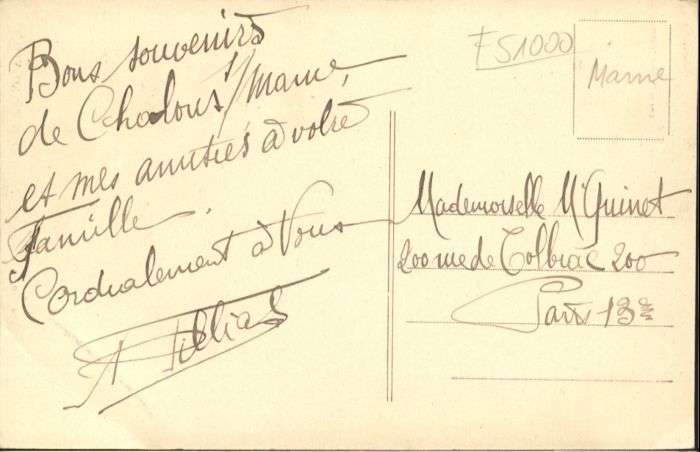 Bons souvenirs
de Chalons s/Marne,
et mes amitiés à votre
famille.
Cordialement à Vous
FS1000
Marne
Mademoiselle M Guinet
200 rue de Tolbiac 200
Paris 13e